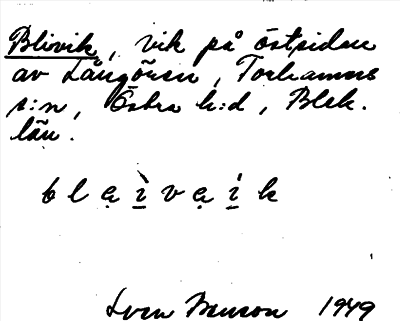 Blivik, vik på östsidan
av Långören, Torhamns
s:n, Östra h:d, Blek.
län.
b l ạ ì̱ v ạ í̱ k
Sven Benson 1949